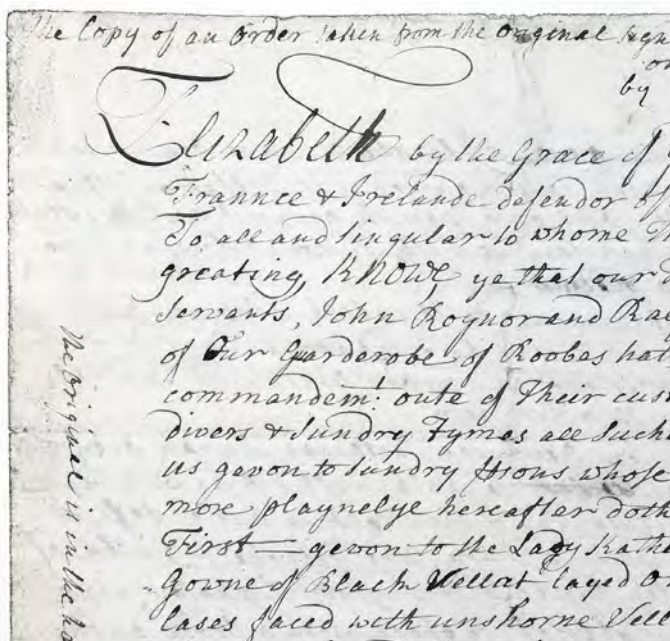 The Copy of an Order taken from the Original
by
Elizabeth by the Grace of
Frannce & Irelande defendor of
To all and Singular to whome
greating, KNOWE ye that our
Servants, John Roynor and
of Our Guarderobe of Roobes
commandemt. oute of Their
divers & Sundry Tymes all Such
us gevon to Sundry whose
more playnelye hereafter doth
First — gevon to the Lady
Gowne of Black Vellat layed
lases faced with unshorne
The Original is in the